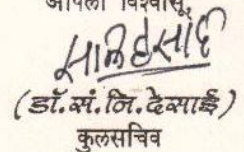 आपला विश्वासू,
(डॉ.सं.नि.देसाई)
कुलसचिव